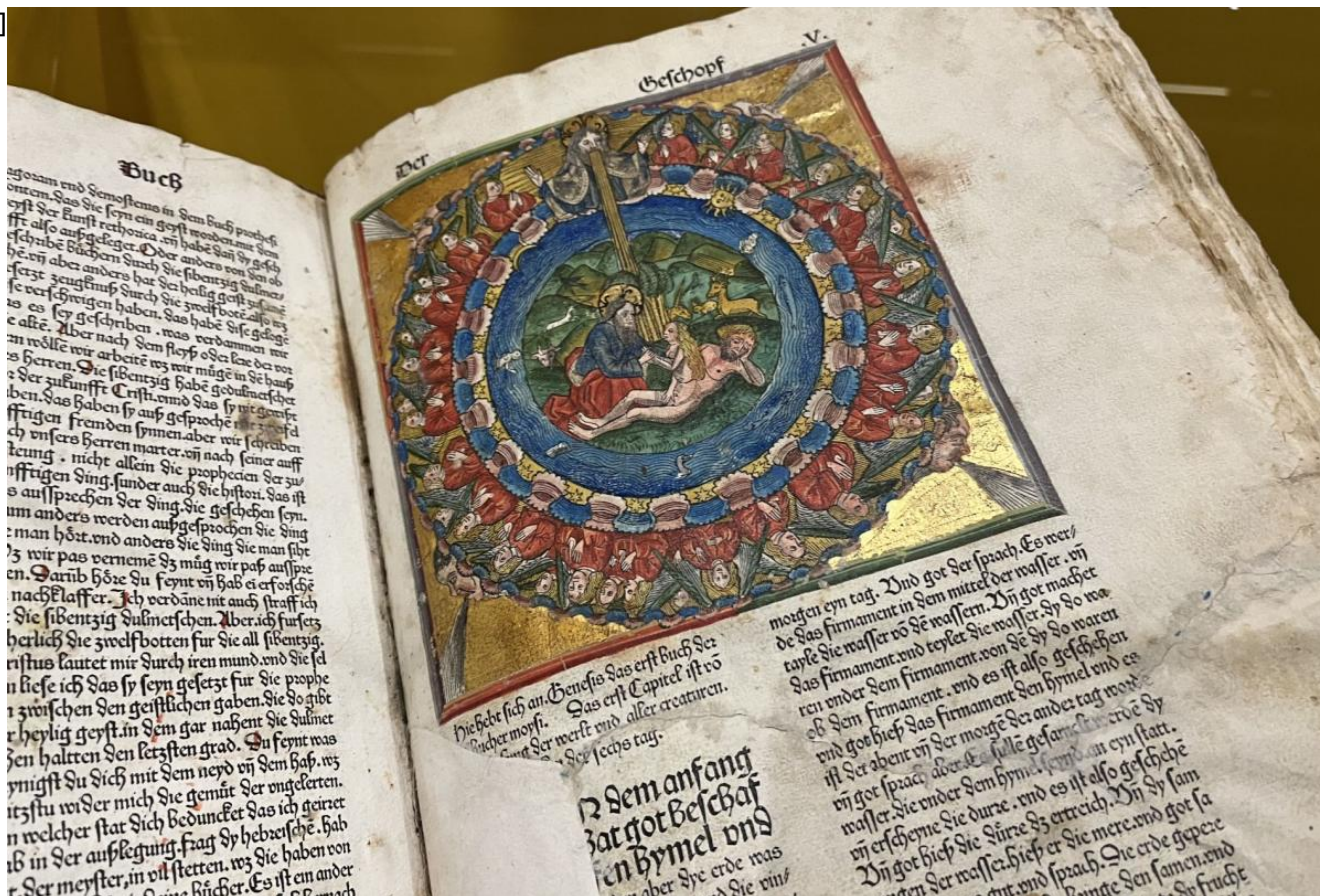 Buch
agoram vnd demostenis in dem buch prothesi
ontem. das die seyn ein geyst worden. mit dem
eyst der kunst rethorica. vñ habē dañ dy gesch
fft also außgeleget. Oder anders von den ob
eschribē büchern durch die sibentzig dulmet/
hē. vñ aber anders hat der heilig geist
esetzt zeugknuß durch die zwelfbotē. also wz
se verschwigen haben. das habē dise gelogē
as es sey geschriben. was verdammen wir
e altē. Aber nach dem fleyß oder lere der vor
m wöllē wir arbeitē wz wir mügē in dē hauß
s herren. Die sibentzig habē gedulmetschet
r der zukunfft Cristi. vnnd das sy nit gewißt
ben. das haben sy auß gesprochē mit
fftigen fremden synnen. aber wir schreiben
ch vnsers herren marter. vñ nach seiner auff
steung. nicht allein die prophecien der zu/
nfftigen ding. sunder auch die histori. das ist
s aussprechen der ding. die geschehen seyn.
ann anders werden außgesprochen die ding
e man hört. vnd anders die ding die man siht
Dz wir pas vernemē dz müg wir paß ausspre
en. Darüb höre du feynt vñ hab ei erforschē
nachklaffer. Ich verdāne nit auch straff ich
die sibentzig dulmetschen. Aber. ich fursetz
herlich die zwelfbotten fur die all sibentzig.
ristus lautet mir durch iren mund. vnd die sel
n liese ich das sy seyn gesetzt fur die prophe
zwischen den geistlichen gaben. die do gibt
r heylig geyst. in dem gar nahent die dulmet
hen haltten den letzsten grad. Du feynt was
ynigst du dich mit dem neyd vñ dem haß. wz
itzstu wider mich die gemüt der vngelerten.
n welcher stat dich beduncket das ich geirret
b in der außlegung. frag dy hebreischē. hab
der meyster, in vil stetten. wz die haben von
bücher. Es ist ein ander
Der Geschopf .V.
Hie hebt sich an. Genesis das erst buch der
bücher moysi. Das erst Capitel ist vō
der werlt vnd aller creaturen.
der sechs tag.
dem anfang
hat got beschaf
en hymel vnd
aber dye erde was
vnd die vin/
morgen eyn tag. Vnd got der sprach. Es wer/
de das firmament in dem mittel der wasser. vñ
tayle die wasser vō dē wassern. Vñ got machet
das firmament. vnd teylet die wasser. dy do wa
ren vnder dem firmament. von dē dy do waren
ob dem firmament. vnd es ist also geschehen
vnd got hieß das firmament den hymel. vnd es
ist der abent vñ der morgē der ander tag worden
vñ got sprach aber. Es sullē gesamelt werdē dy
wasser. die vnder dem hymel seynd. an eyn statt.
vñ erscheyne die durre. vnd es ist also geschehē
Vñ got hieß die dürre. dz ertreich. Vñ dy sam
gen der wasser. hieß er die mere. vnd got sa
gut. vnd sprach. Die erde gepere
den samen. vnd
frucht